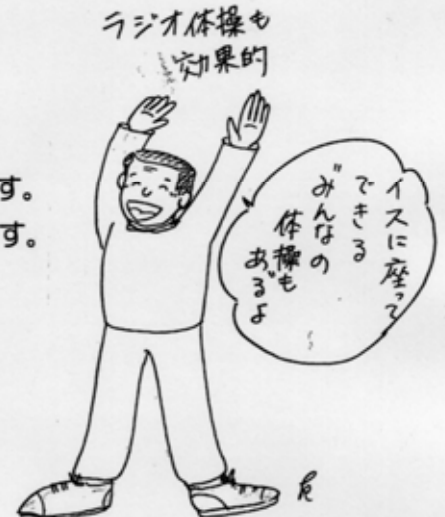 ラジオ体操も
効果的
す。
す。
イスに座って
できる
"みんなの
体操も
あるよ